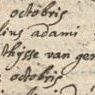 octobris
lius adami
thijsse van gen
octobris